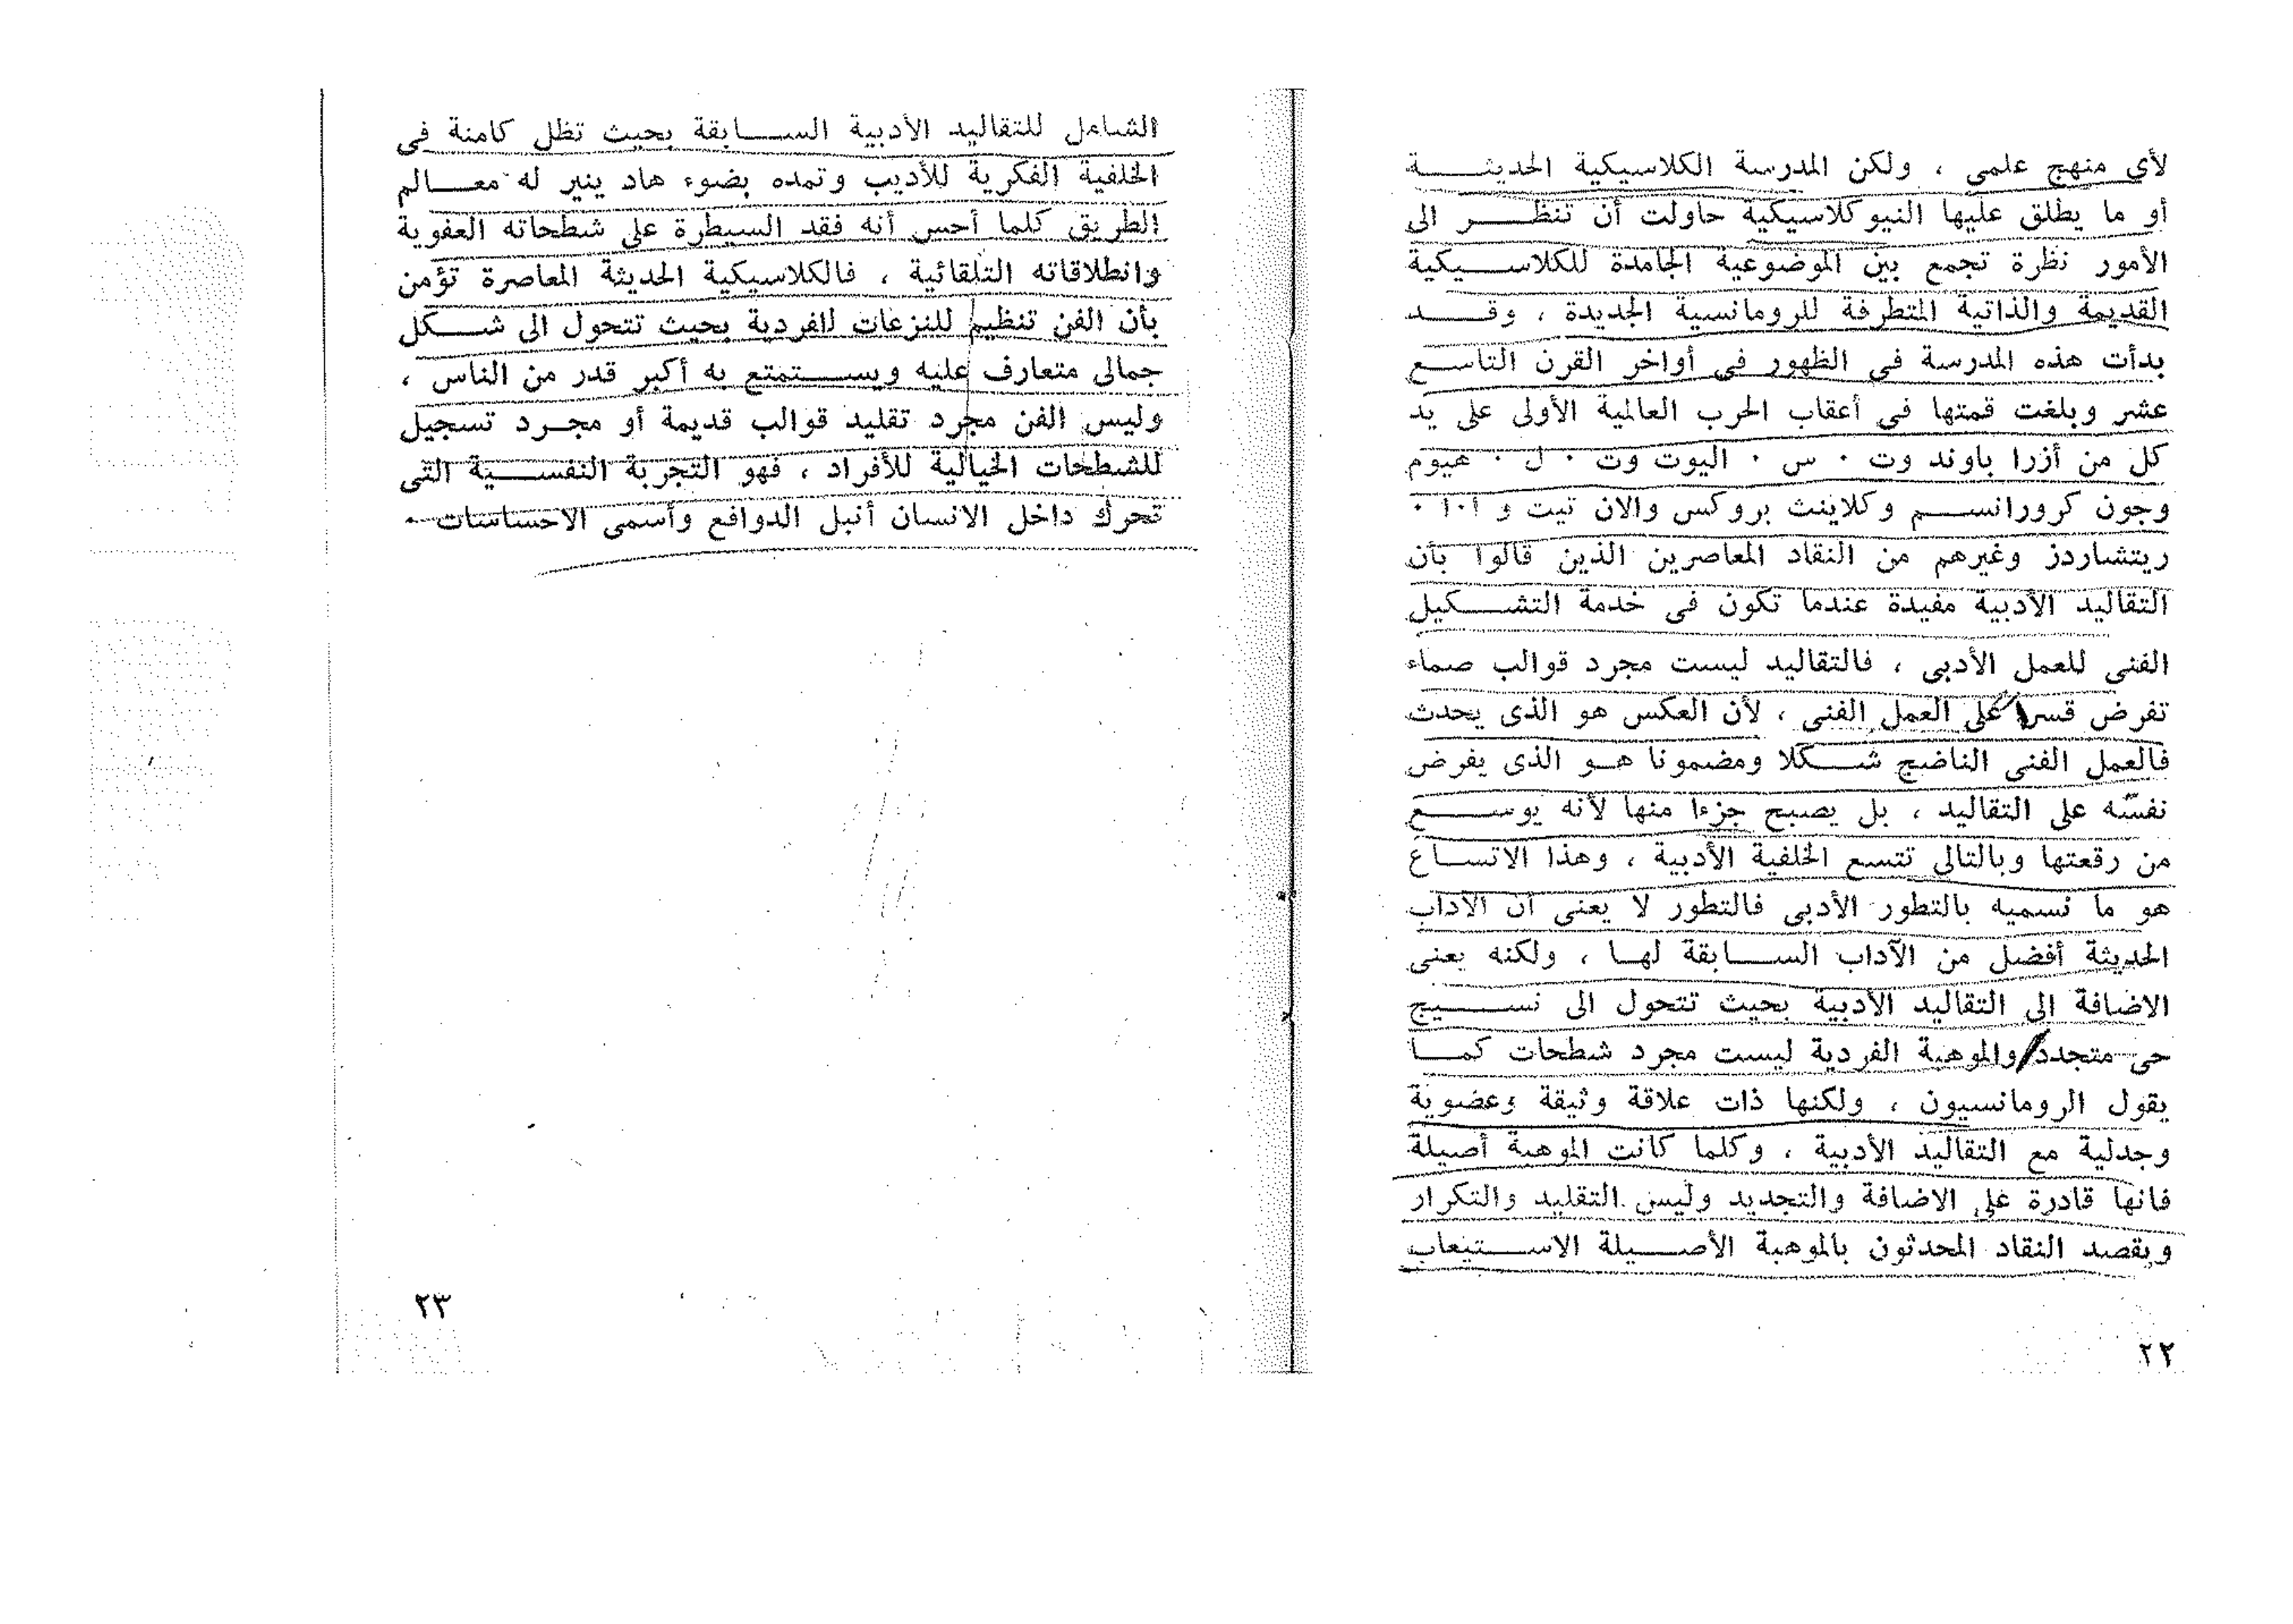 لأي منهج علمي ، ولكن المدرسة الكلاسيكية الحديثة
أو ما يطلق عليها النيوكلاسيكية حاولت أن تنظر الى
الأمور نظرة تجمع بين الموضوعية الجامدة للكلاسيكية
القديمة والذاتية المتطرفة للرومانسية الجديدة ، وقد
بدأت هذه المدرسة في الظهور في أواخر القرن التاسع
عشر وبلغت قمتها في أعقاب الحرب العالمية الأولى على يد
كل من أزرا باوند وت ٠ س ٠ اليوت وت ٠ ل ٠ هيوم
وجون كرورانسم وكلاينث بروكس والان تيت و أ٠ا ٠
ريتشاردز وغيرهم من النقاد المعاصرين الذين قالوا بأن
التقاليد الأدبية مفيدة عندما تكون في خدمة التشكيل
الفني للعمل الأدبي ، فالتقاليد ليست مجرد قوالب صماء
تفرض قسرا على العمل الفني ، لأن العكس هو الذي يحدث
فالعمل الفني الناضج شكلا ومضمونا هو الذي يفرض
نفسه على التقاليد ، بل يصبح جزءا منها لأنه يوسع
من رقعتها وبالتالي تتسع الخلفية الأدبية ، وهذا الاتساع
هو ما نسميه بالتطور الأدبي فالتطور لا يعني أن الآداب
الحديثة أفضل من الآداب السابقة لها ، ولكنه يعني
الاضافة الى التقاليد الأدبية بحيث تتحول الى نسيج
حي متجدد والموهبة الفردية ليست مجرد شطحات كما
يقول الرومانسيون ، ولكنها ذات علاقة وثيقة وعضوية
وجدلية مع التقاليد الأدبية ، وكلما كانت الموهبة أصيلة
فانها قادرة على الاضافة والتجديد وليس التقليد والتكرار
ويقصد النقاد المحدثون بالموهبة الأصيلة الاستيعاب
٢٢
الشامل للتقاليد الأدبية السابقة بحيث تظل كامنة في
الخلفية الفكرية للأديب وتمده بضوء هاد ينير له معالم
الطريق كلما أحس أنه فقد السيطرة على شطحاته العفوية
وانطلاقاته التلقائية ، فالكلاسيكية الحديثة المعاصرة تؤمن
بأن الفن تنظيم للنزعات الفردية بحيث تتحول الى شكل
جمالي متعارف عليه ويستمتع به أكبر قدر من الناس ،
وليس الفن مجرد تقليد قوالب قديمة أو مجرد تسجيل
للشطحات الخيالية للأفراد ، فهو التجربة النفسية التي
تحرك داخل الانسان أنبل الدوافع وأسمى الاحساسات ٠
٢٣